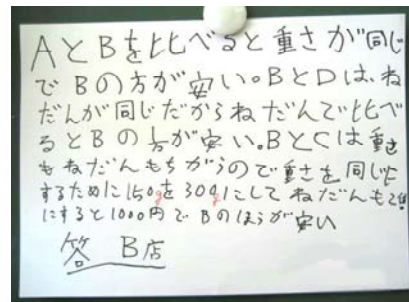 AとBを比べると重さが同じ
でBの方が安い。BとDは、ね
だんが同じだからねだんで比べ
るとBの方が安い。BとCは重さ
もねだんもちがうので重さを同じに
するために150gを300gにしてねだんも2倍
にすると1000円でBのほうが安い
答 B店